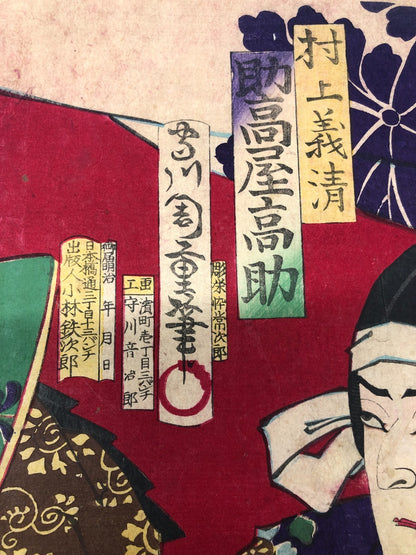 村上義清
助高屋高助
守川周重筆
彫栄
常次郎
画工
濱町壱丁目三バンチ
守川音治郎
御届明治 年 月 日
日本橋通三丁目十三バンチ
出版人 小林鉄次郎